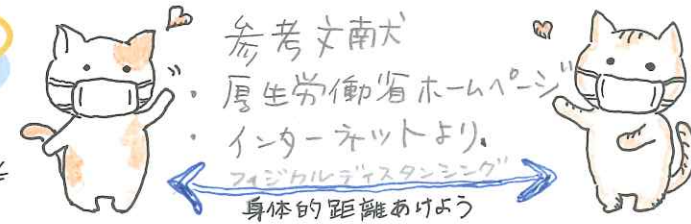 参考文献
・厚生労働省ホームページ
・インターネットより。
フィジカルディスタンシング
身体的距離あけよう